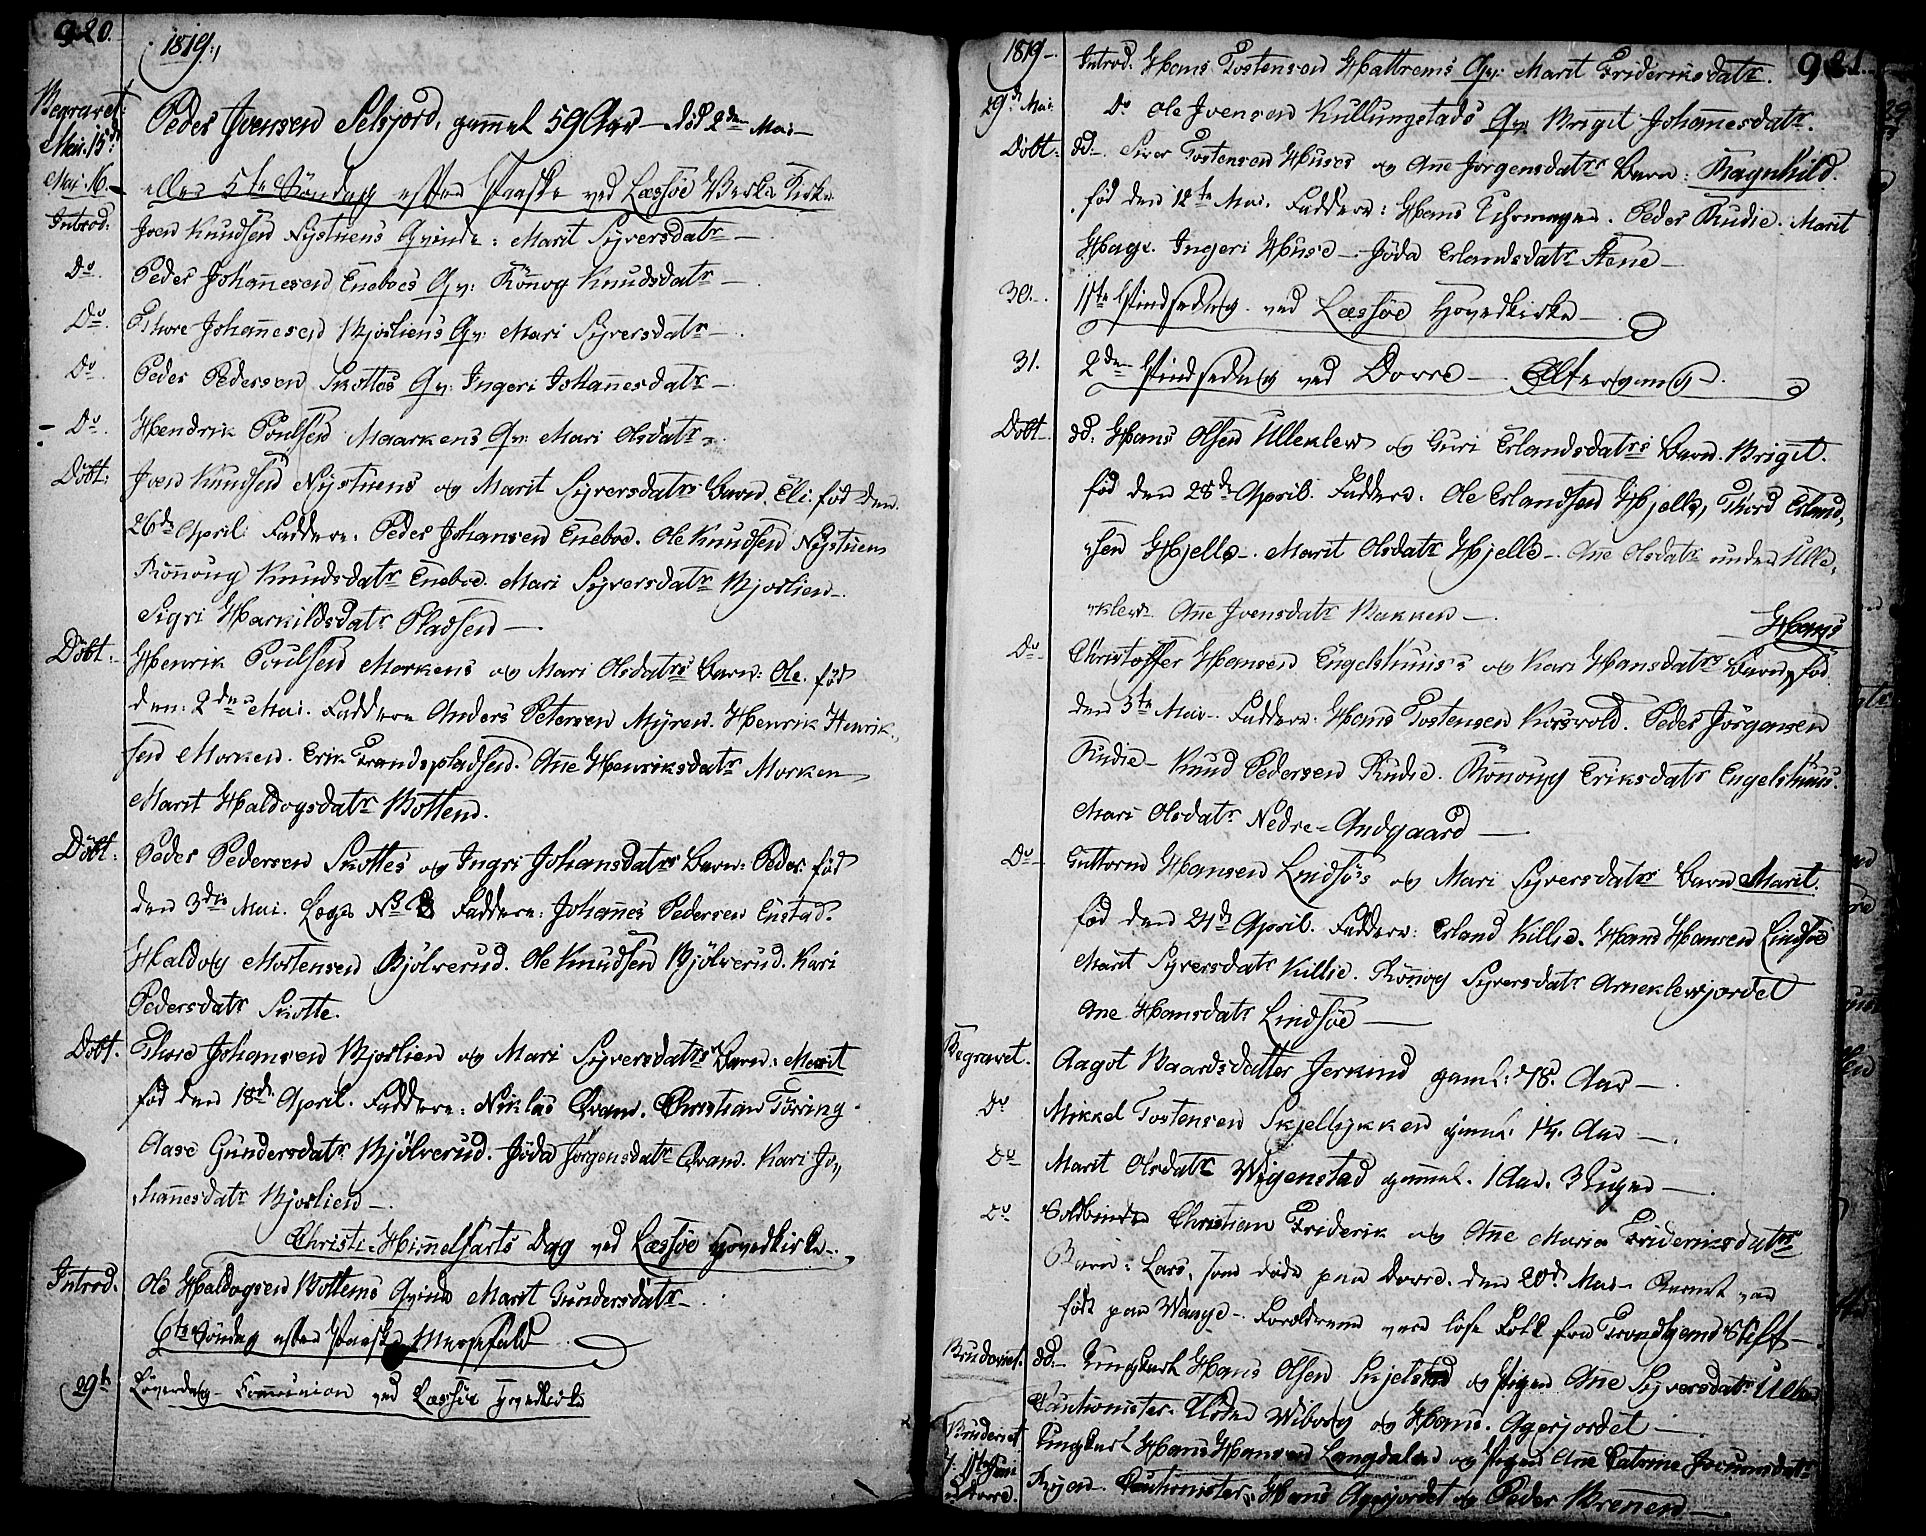 920.
1819.
Begravet
Mai. 15de
Peder Jvensen Selsjord, gammel 59 Aar – död 2den Mai –
Mai. 16. – eller 5te Söndag efter Paaske ved Læssöe Værks Kirke
Introd: Jven Knudsen Nystuens Qvinde: Marit Syversdatr –
Do. Peder Johannesen Eneboes Qv: Rönnog Knudsdatr –
Do. Thore Johannesen Bjorliens Qv: Mari Syversdatr –
Do. Peder Pedersen Skottes Qv: Ingeri Johannesdatr –
Do. Hendrik Poulsen Maarkens Qv: Mari Olsdatr –
Döbt: Jven Knudsen Nystuens og Marit Syversdatrs Barn. Eli. föd den
26de April. Faddere: Peder Johansen Eneboe. Ole Knudsen Nystuen
Rönnoug Knudsdatr Eneboe. Mari Syversdatr Bjorlien –
Sigri Harkildsdatr Pladsen –
Döbt: Henrik Poulsen Morkens og Mari Olsdatrs Barn: Ole. föd
den 2den Mai. Faddere Anders Petersen Myren. Henrik Henrik,
sen Morken. Erik Trandspladsen. Ane Henriksdatr Morken
Marit Haldogsdatr Botten.
Döbt: Peder Pedersen Skottes og Ingri Johansdatrs Barn: Peder. föd
den 3die Mai. Læg No 8 Faddere: Johannes Pedersen Enstad.
Haldog Mortensen Bjölverud. Ole Knudsen Bjölverud. Kari
Pedersdatr Skotte.
Döbt. Thore Johansen Bjorlien og Mari Syversdatrs Barn: Marit
föd den 18de April. Faddere: Niklas Qvam. Christian Törring
Aase Gundersdatr Bjölverud. Jöda Jörgensdatr Qvam. Kari Jo,
hannesdatr Bjorlien –
Christi-Himmelfarts Dag ved Læssöe Hovedkirke –
Introd. Ole Haldogsen Bottens Qvinde Marit Gundersdatr –
6te Söndag efter Paaske Messefald
29de Löverdag – Communion ved Læssöe Hovedkirke
921.
1819 – Introd. Hans Tostensen Hattrems Qv: Marit Frideriksdatr.
29de Mai Do Ole Jvensen Kullungstads Qv: Brigit Johannesdatr.
Döbt: dd – Siver Tostensen Huses og Ane Jorgensdatrs Barn: Ragnhild.
föd den 12te Mai. Faddere: Hans Uhrmager. Peder Rudie. Marit
Hage. Ingeri Huse – Jöda Erlandsdatr Stene –
30. – 1ste Pindsedag ved Læssöe Hovedkirke –
31. 2den Pindsedag ved Dovre – Altergang.
Döbt – dd: Hans Olsen Ulleklev og Guri Erlandsdatrs Barn. Brigit.
föd den 28de April. Faddere: Ole Erlandsen Hjelle, Thord Erland,
sen Hjelle –. Marit Olsdatr Hjelle –. Ane Olsdatr under Ulle,
klev. Ane Jvensdatr Bakken –
Hans
Do – Christoffer Hansen Engelshuus's og Kari Hansdatrs Barn, föd
den 5te Mai. Faddere: Hans Tostensen Korsvold. Peder Jörgensen
Rudie – Knud Pedersen Rudie. Rönoug Eriksdatr Engelshuus.
Mari Olsdatr Nedre-Andgaard –
Do – Guttorm Hansen Lindsö's og Mari Syversdatrs Barn Marit.
föd den 24de April. Faddere: Erland Killie. Hans Hansen Lindsöe
Marit Syversdatr Killie. Rönnog Syversdatr Arneklevjordet
Ane Hansdatr Lindsöe –
Begravet. Aagot Baardsdatter Jerkind gaml: 78. Aar –
Do Mikkel Tostensen Skjellykken gaml. 14. Aar –
Do Marit Olsdatr Wigenstad gammel. 1 Aar. 3 Uger –
Do Soldbinder Christian Friderik og Ane Maria Frideriksdatrs
Barn: Lars, som döde paa Dovre. den 20de Mai – Barnet var
födt paa Waage – Forældrene vare löse Folk fra Trondhjems Stift –
Brudeviet. dd – Ungkarl Hans Olsen Skjelstad og Pigen Ane Syversdatr
Cautionister: Wiborg og Hans Agerjordet –
Brudeviet
7. Juni
Dovre.
Ungkarl Hans Hansen Langdalen og Pigen Ane Catrine
Cautionister: Hans Agerjordet og Peder Brenen –